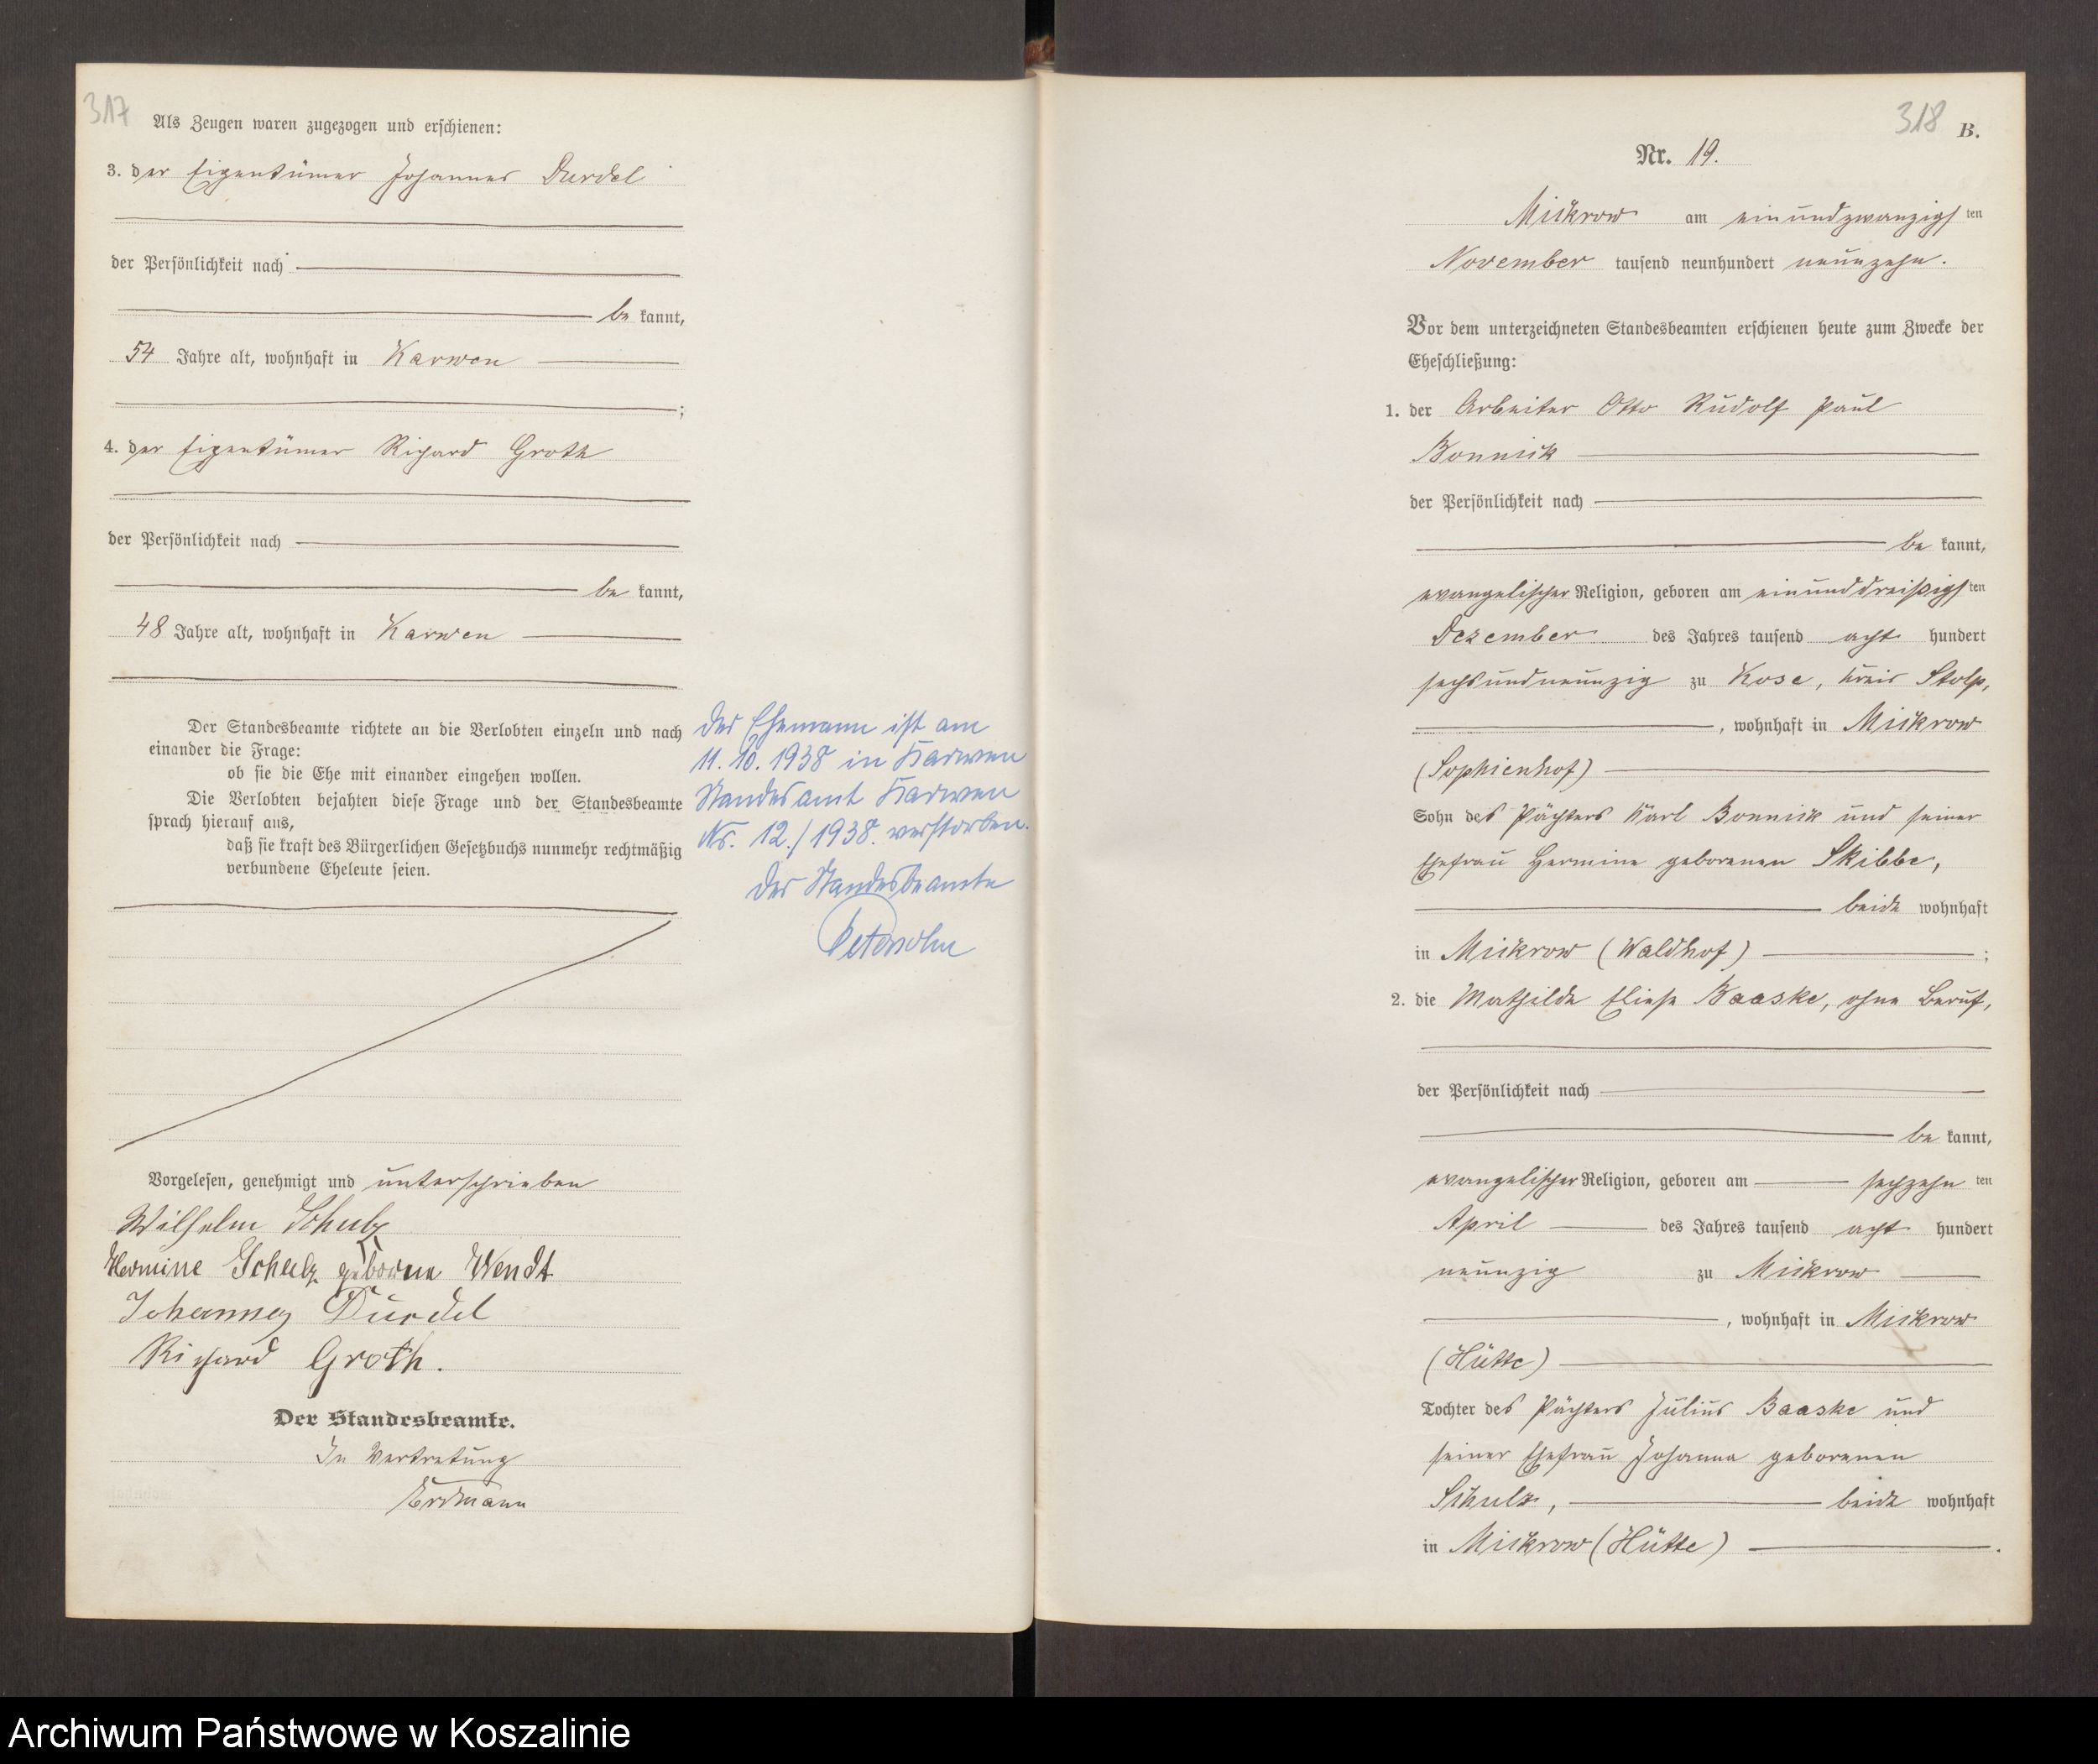 317
Als Zeugen waren zugezogen und erschienen:
3. der Eigentümer Johannes Dürdel
der Persönlichkeit nach
be kannt,
54 Jahre alt, wohnhaft in Karwen
;
4. der Eigentümer Richard Groth
der Persönlichkeit nach
be kannt,
48 Jahre alt, wohnhaft in Karwen
Der Standesbeamte richtete an die Verlobten einzeln und nach
einander die Frage:
ob sie die Ehe mit einander eingehen wollen.
Die Verlobten bejahten diese Frage und der Standesbeamte
sprach hierauf aus,
daß sie kraft des Bürgerlichen Gesetzbuchs nunmehr rechtmäßig
verbundene Eheleute seien.
Vorgelesen, genehmigt und unterschrieben
Wilhelm Schulz
Hermine Schulz geborne Wendt
Johannes Dürdel
Richard Groth.
Der Standesbeamte.
In Vertretung
Erdmann
Der Ehemann ist am
11. 10. 1938 in Karwen
Standesamt Karwen
Nr. 12./1938. verstorben.
Der Standesbeamte
318
B.
Nr. 19.
Mickrow am einundzwanzigsten
November tausend neunhundert neunzehn.
Vor dem unterzeichneten Standesbeamten erschienen heute zum Zwecke der
Eheschließung:
1. der Arbeiter Otto Rudolf Paul
Bonnick
der Persönlichkeit nach
be kannt,
evangelischer Religion, geboren am einunddreißigsten
Dezember des Jahres tausend acht hundert
sechsundneunzig zu Kose, Kreis Stolp,
, wohnhaft in Mickrow
(Sophienhof)
Sohn des Pächters Karl Bonnick und seiner
Ehefrau Hermine geborenen Skibbe,
beide wohnhaft
in Mickrow (Waldhof) ;
2. die Mathilde Eliese Baaske, ohne Beruf,
der Persönlichkeit nach
be kannt,
evangelischer Religion, geboren am sechzehn ten
April des Jahres tausend acht hundert
neunzig zu Mickrow
, wohnhaft in Mickrow
(Hütte)
Tochter des Pächters Julius Baaske und
seiner Ehefrau Johanna geborenen
Schulz, beide wohnhaft
in Mickrow (Hütte) .
Archiwum Państwowe w Koszalinie